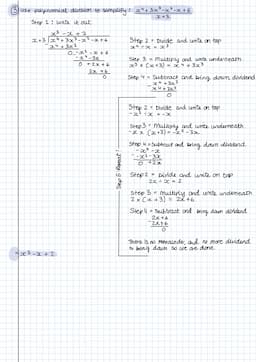 ③ Use polynomial division to simplify: x⁴+3x³-x²-x+6
x+3
Step 1: Write it out
x³ - x + 2
x+3 | x⁴+3x³-x²-x+6
x⁴+3x³
0 -x²-x+6
-x²-3x
0 +2x+6
2x+6
0
Step 2 = Divide and write on top
x⁴ ÷ x = x³
Step 3 = Multiply and write underneath
x³ × (x+3) = x⁴+3x³
Step 4 = Subtract and bring down dividend
x⁴+3x³
-x⁴+3x³
0
Step 5: Repeat!
Step 2 = Divide and write on top
-x² ÷ x = -x
Step 3 = Multiply and write underneath
-x × (x+3) = -x²-3x
Step 4 = Subtract and bring down dividend
-x²-x
-x²-3x
0 +2x
Step 2 = Divide and write on top
2x ÷ x = 2
Step 3 = Multiply and write underneath
2 × (x+3) = 2x+6
Step 4 = Subtract and bring down dividend
2x+6
-2x+6
0
There is no remainder, and no more dividend
to bring down so we are done.
= x³ - x + 2